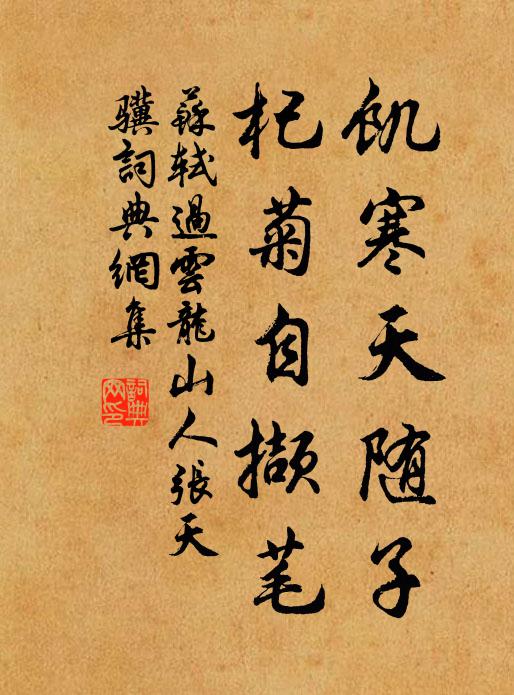 飢寒天随子
杞菊自擷芼
蘇軾過雲龍山人張天
驥詞典網集